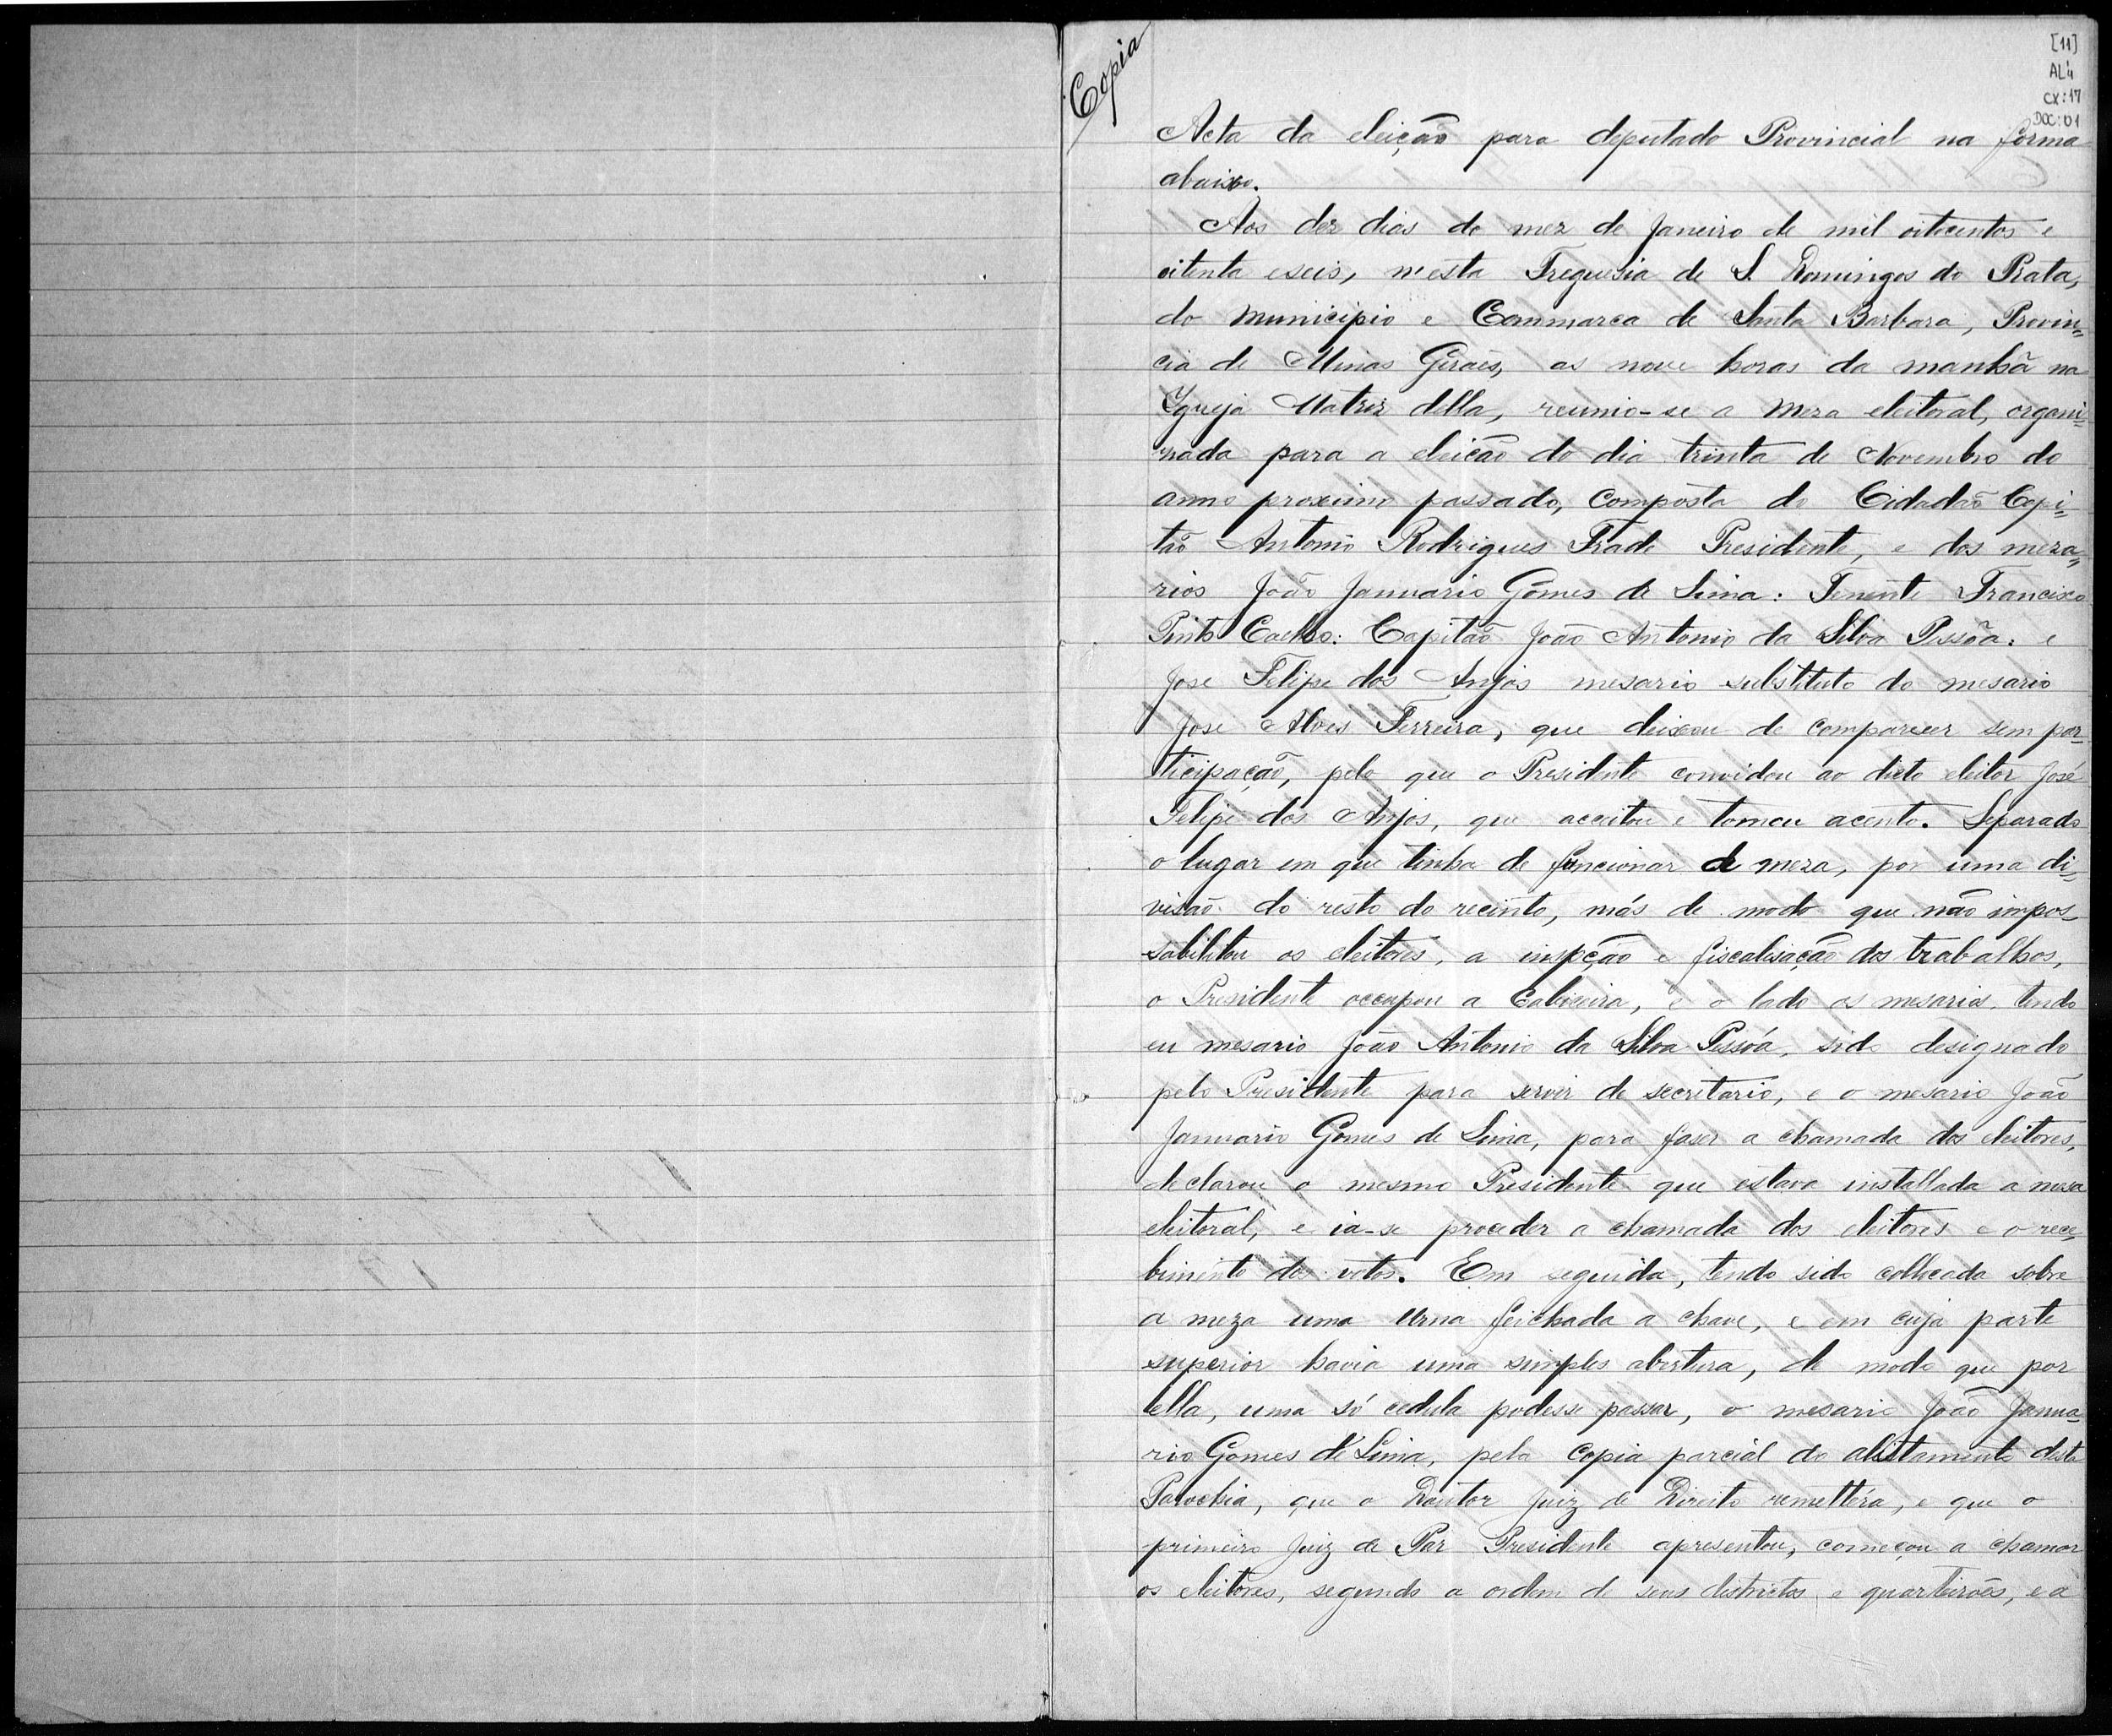 Copia
[11]
AL4
CX:17
DOC:01
Acta da eleição para deputado Provincial na forma
abaixo.
Aos dez dias do mez de Janeiro de mil oitocentos e
oitenta eseis, n'esta Freguesia de S. Domingos do Prata,
do Municipio e Commarca de Santa Barbara, Provin=
cia de Minas Geraes, as nove horas da manhã na
Ygreja Matriz della, reunio-se a Meza eleitoral, organi=
nada para a eleição do dia trinta de Novembro do
anno proximo passado, Composta do Cidadão Capi=
tão Antonio Rodrigues Frade Presidente, e dos meza=
rios João Januario Gomes de Lima: Tenente Francisco
Pinto Coelho: Capitão João Antonio da Silva Pessôa: e
Jose Felipe dos Anjos mesario substituto do mesario
Jose Alves Ferreira, que deixou de comparecer sem par=
ticipação, pelo que o Presidente convidou ao dicto eleitor José
Felipe dos Anjos, que acceitou e tomou acento. Separado
o lugar em que tinha de funcionar a meza, por uma di=
visão do resto do recinto, más de modo que não impos=
sabilitou os eleitores, a inspção e fiscalisação dos trabalhos,
o Presidente occupou a Cabiceira, e o lado os mesarios, tendo
eu mesario João Antonio da Silva Pessôa, sido designado
pelo Presidente para servir de secretario, e o mesario João
Januario Gomes de Lima, para faser a chamada dos eleitores,
declarou o mesmo Presidente que estava installada a mesa
eleitoral, e ia-se proceder a chamada dos eleitores e o rece=
bimento dos votos. Em seguida, tendo sido collocada sobre
a meza uma Urna feichada a chave, e em cuja parte
superior havia uma simples abertura, de modo que por
ella, uma só cedula podesse passar, o mesario João Janua=
rio Gomes de Lima, pela Copia parcial do alistamento desta
Parochia, que o Doutor Juiz de Direito remettéra, e que o
primeiro Juiz de Paz Presidente apresentou, começou a chamar
os eleitores, segundo a ordem de seus districtos e quarteirões, e a